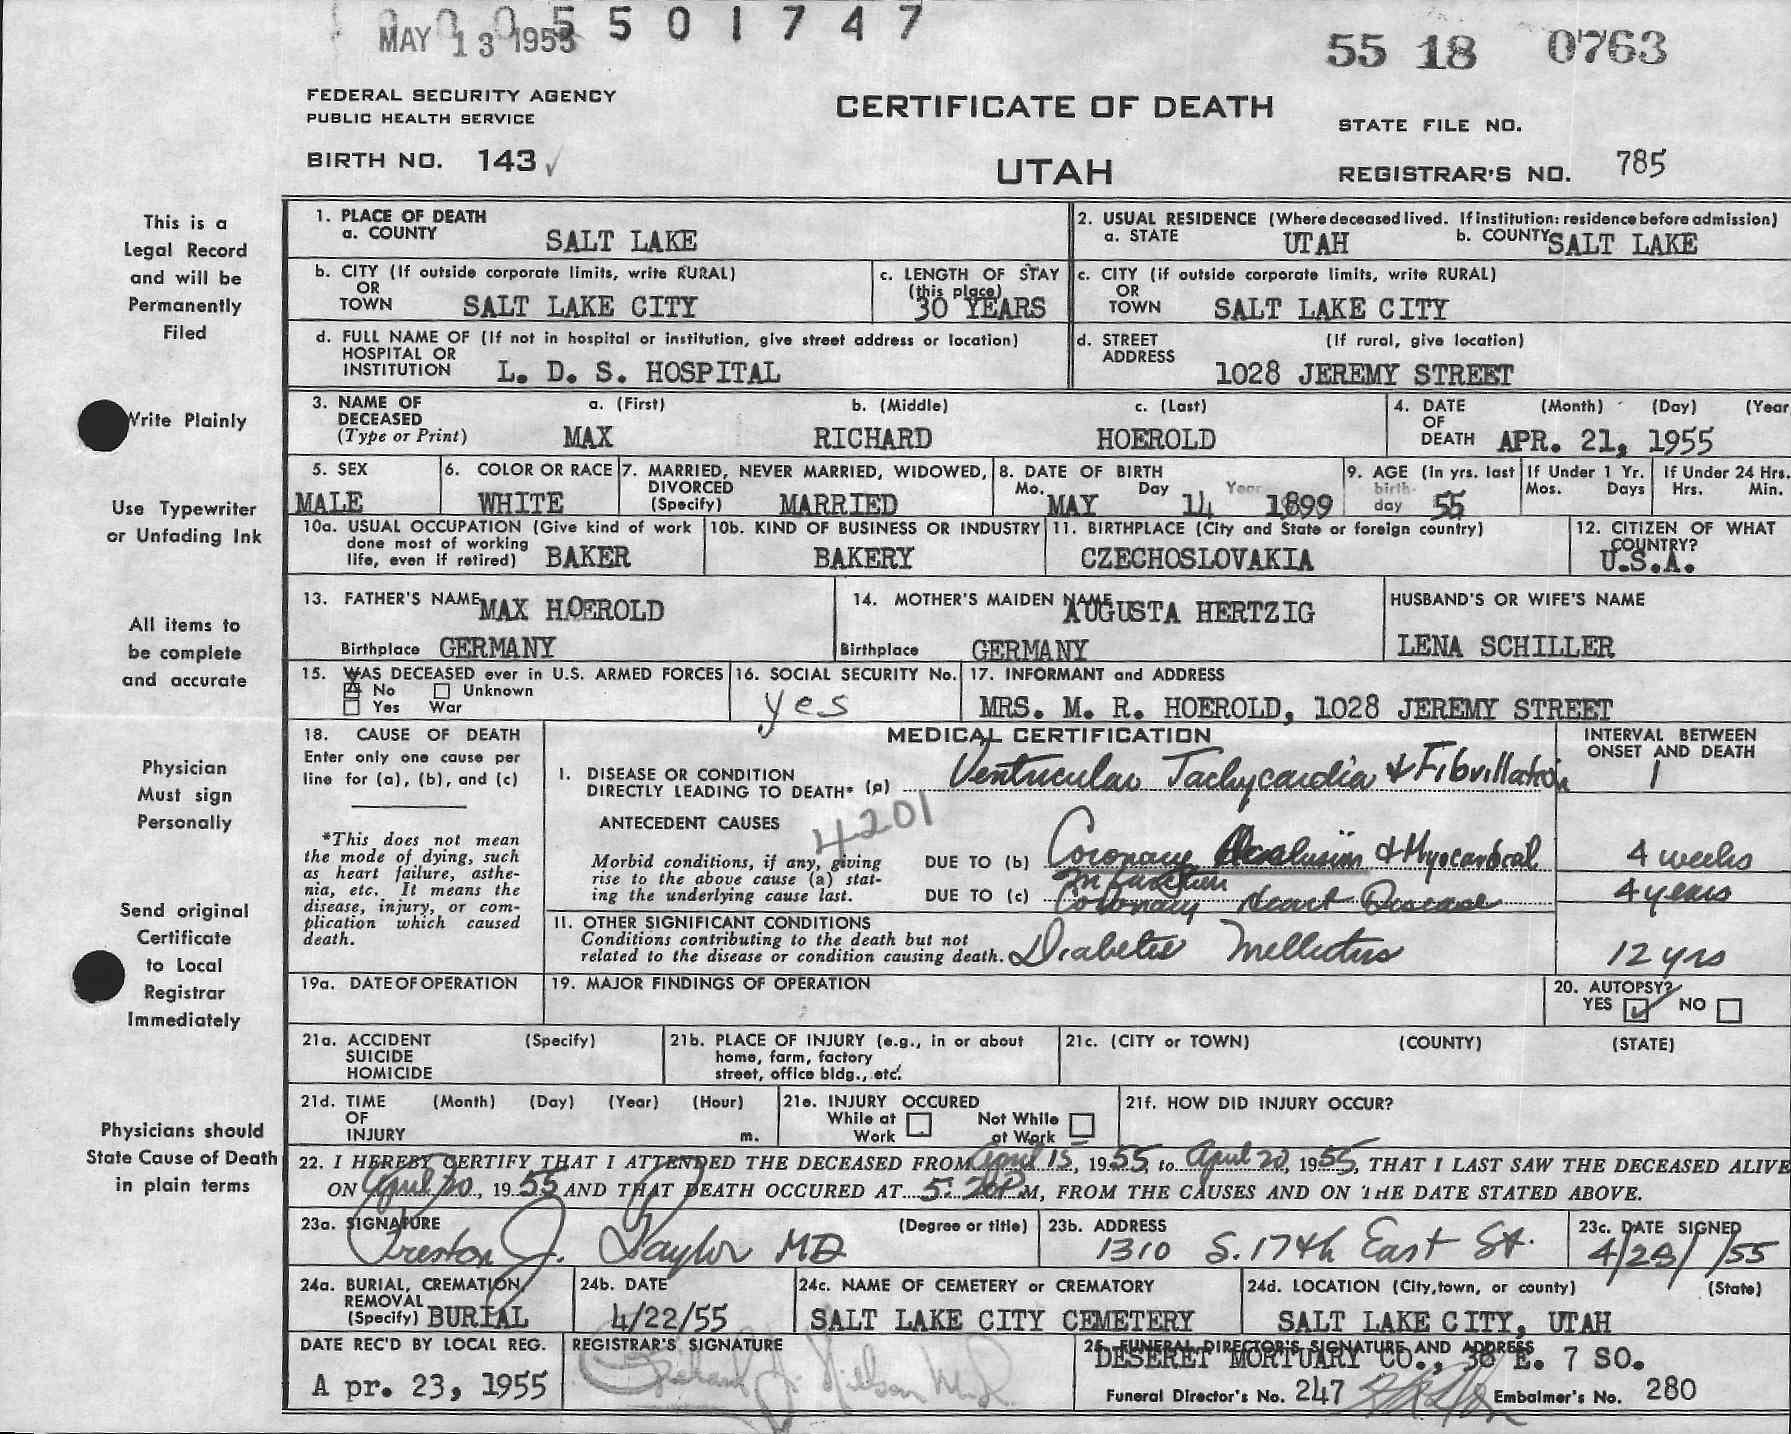 MAY 13 1955 5501747
55 18 0763
FEDERAL SECURITY AGENCY
PUBLIC HEALTH SERVICE
BIRTH NO. 143
CERTIFICATE OF DEATH
UTAH
STATE FILE NO.
REGISTRAR'S NO. 785
This is a
Legal Record
and will be
Permanently
Filed
Write Plainly
Use Typewriter
or Unfading Ink
All items to
be complete
and accurate
Physician
Must sign
Personally
Send original
Certificate
to Local
Registrar
Immediately
Physicians should
State Cause of Death
in plain terms
1. PLACE OF DEATH
a. COUNTY SALT LAKE
2. USUAL RESIDENCE (Where deceased lived. If institution: residence before admission)
a. STATE UTAH b. COUNTY SALT LAKE
b. CITY (If outside corporate limits, write RURAL)
OR
TOWN SALT LAKE CITY
c. LENGTH OF STAY
(this place)
30 YEARS
c. CITY (if outside corporate limits, write RURAL)
OR
TOWN SALT LAKE CITY
d. FULL NAME OF (If not in hospital or institution, give street address or location)
HOSPITAL OR
INSTITUTION L. D. S. HOSPITAL
d. STREET (If rural, give location)
ADDRESS
1028 JEREMY STREET
3. NAME OF DECEASED (Type or Print)
a. (First) b. (Middle) c. (Last)
MAX RICHARD HOEROLD
4. DATE (Month) (Day) (Year
OF
DEATH APR. 21, 1955
5. SEX
MALE
6. COLOR OR RACE
WHITE
7. MARRIED, NEVER MARRIED, WIDOWED,
DIVORCED
(Specify) MARRIED
8. DATE OF BIRTH
Mo. Day Year
MAY 14 1899
9. AGE (In yrs. last
birth-
day 55
If Under 1 Yr.
Mos. Days
If Under 24 Hrs.
Hrs. Min.
10a. USUAL OCCUPATION (Give kind of work
done most of working
life, even if retired) BAKER
10b. KIND OF BUSINESS OR INDUSTRY
BAKERY
11. BIRTHPLACE (City and State or foreign country)
CZECHOSLOVAKIA
12. CITIZEN OF WHAT
COUNTRY?
U.S.A.
13. FATHER'S NAME MAX HOEROLD
Birthplace GERMANY
14. MOTHER'S MAIDEN NAME AUGUSTA HERTZIG
Birthplace GERMANY
HUSBAND'S OR WIFE'S NAME
LENA SCHILLER
15. WAS DECEASED ever in U.S. ARMED FORCES
No Unknown
Yes War
16. SOCIAL SECURITY No.
yes
17. INFORMANT and ADDRESS
MRS. M. R. HOEROLD, 1028 JEREMY STREET
18. CAUSE OF DEATH
Enter only one cause per
line for (a), (b), and (c)
*This does not mean
the mode of dying, such
as heart failure, asthe-
nia, etc. It means the
disease, injury, or com-
plication which caused
death.
MEDICAL CERTIFICATION
INTERVAL BETWEEN
ONSET AND DEATH
I. DISEASE OR CONDITION
DIRECTLY LEADING TO DEATH* (a) Ventricular Tachycardia & Fibrillation 1
ANTECEDENT CAUSES 4201
Morbid conditions, if any, giving
rise to the above cause (a) stat-
ing the underlying cause last.
DUE TO (b) Coronary Occlusion & Myocardial 4 weeks
Infarction
DUE TO (c) Coronary Heart Disease 4 years
II. OTHER SIGNIFICANT CONDITIONS
Conditions contributing to the death but not
related to the disease or condition causing death. Diabetes Mellitus 12 yrs
19a. DATE OF OPERATION
19. MAJOR FINDINGS OF OPERATION
20. AUTOPSY?
YES NO
21a. ACCIDENT (Specify)
SUICIDE
HOMICIDE
21b. PLACE OF INJURY (e.g., in or about
home, farm, factory
street, office bldg., etc.
21c. (CITY or TOWN) (COUNTY) (STATE)
21d. TIME (Month) (Day) (Year) (Hour)
OF
INJURY m.
21e. INJURY OCCURED
While at Work Not While at Work
21f. HOW DID INJURY OCCUR?
22. I HEREBY CERTIFY THAT I ATTENDED THE DECEASED FROM April 15, 1955, to April 20, 1955, THAT I LAST SAW THE DECEASED ALIVE
ON April 20, 1955 AND THAT DEATH OCCURED AT 5:20P M, FROM THE CAUSES AND ON THE DATE STATED ABOVE.
23a. SIGNATURE (Degree or title)
Preston J. Taylor MD
23b. ADDRESS
1310 S. 17th East St.
23c. DATE SIGNED
4/23/55
24a. BURIAL, CREMATION,
REMOVAL
(Specify) BURIAL
24b. DATE
4/22/55
24c. NAME OF CEMETERY or CREMATORY
SALT LAKE CITY CEMETERY
24d. LOCATION (City, town, or county) (State)
SALT LAKE CITY, UTAH
DATE REC'D BY LOCAL REG.
Apr. 23, 1955
REGISTRAR'S SIGNATURE
25. FUNERAL DIRECTOR'S SIGNATURE AND ADDRESS
DESERET MORTUARY CO., 36 E. 7 SO.
Funeral Director's No. 247 Embalmer's No. 280